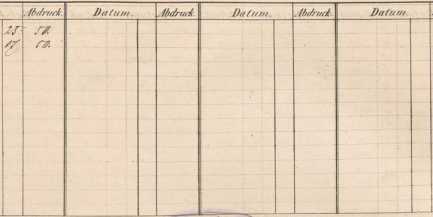 Abdruck. Datum. Abdruck. Datum. Abdruck. Datum.
25 50.
07 60.